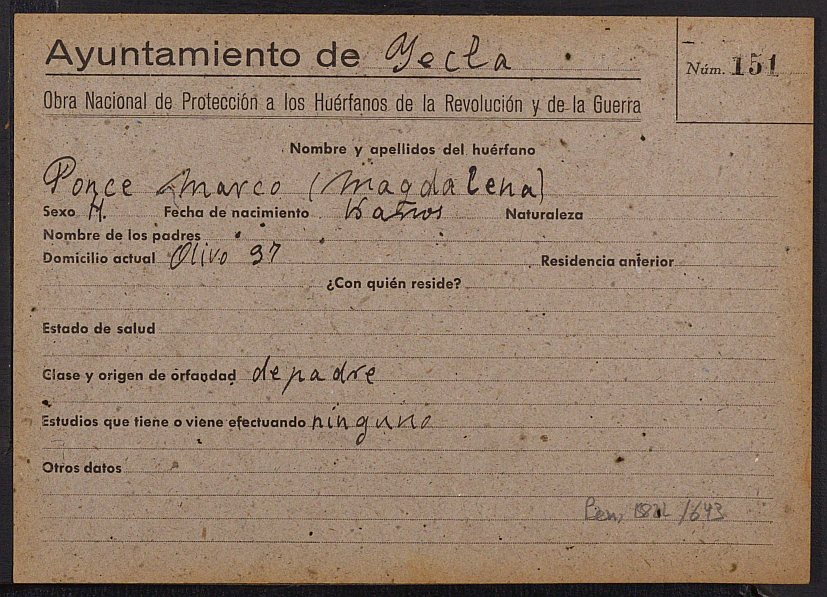 Ayuntamiento de Yecla
Núm. 151
Obra Nacional de Protección a los Huérfanos de la Revolución y de la Guerra
Nombre y apellidos del huérfano
Ponce Marco (Magdalena)
Sexo H. Fecha de nacimiento años Naturaleza
Nombre de los padres
Domicilio actual Olivo 97 Residencia anterior
¿Con quién reside?
Estado de salud
Clase y origen de orfandad de padre
Estudios que tiene o viene efectuando ninguno
Otros datos
/643